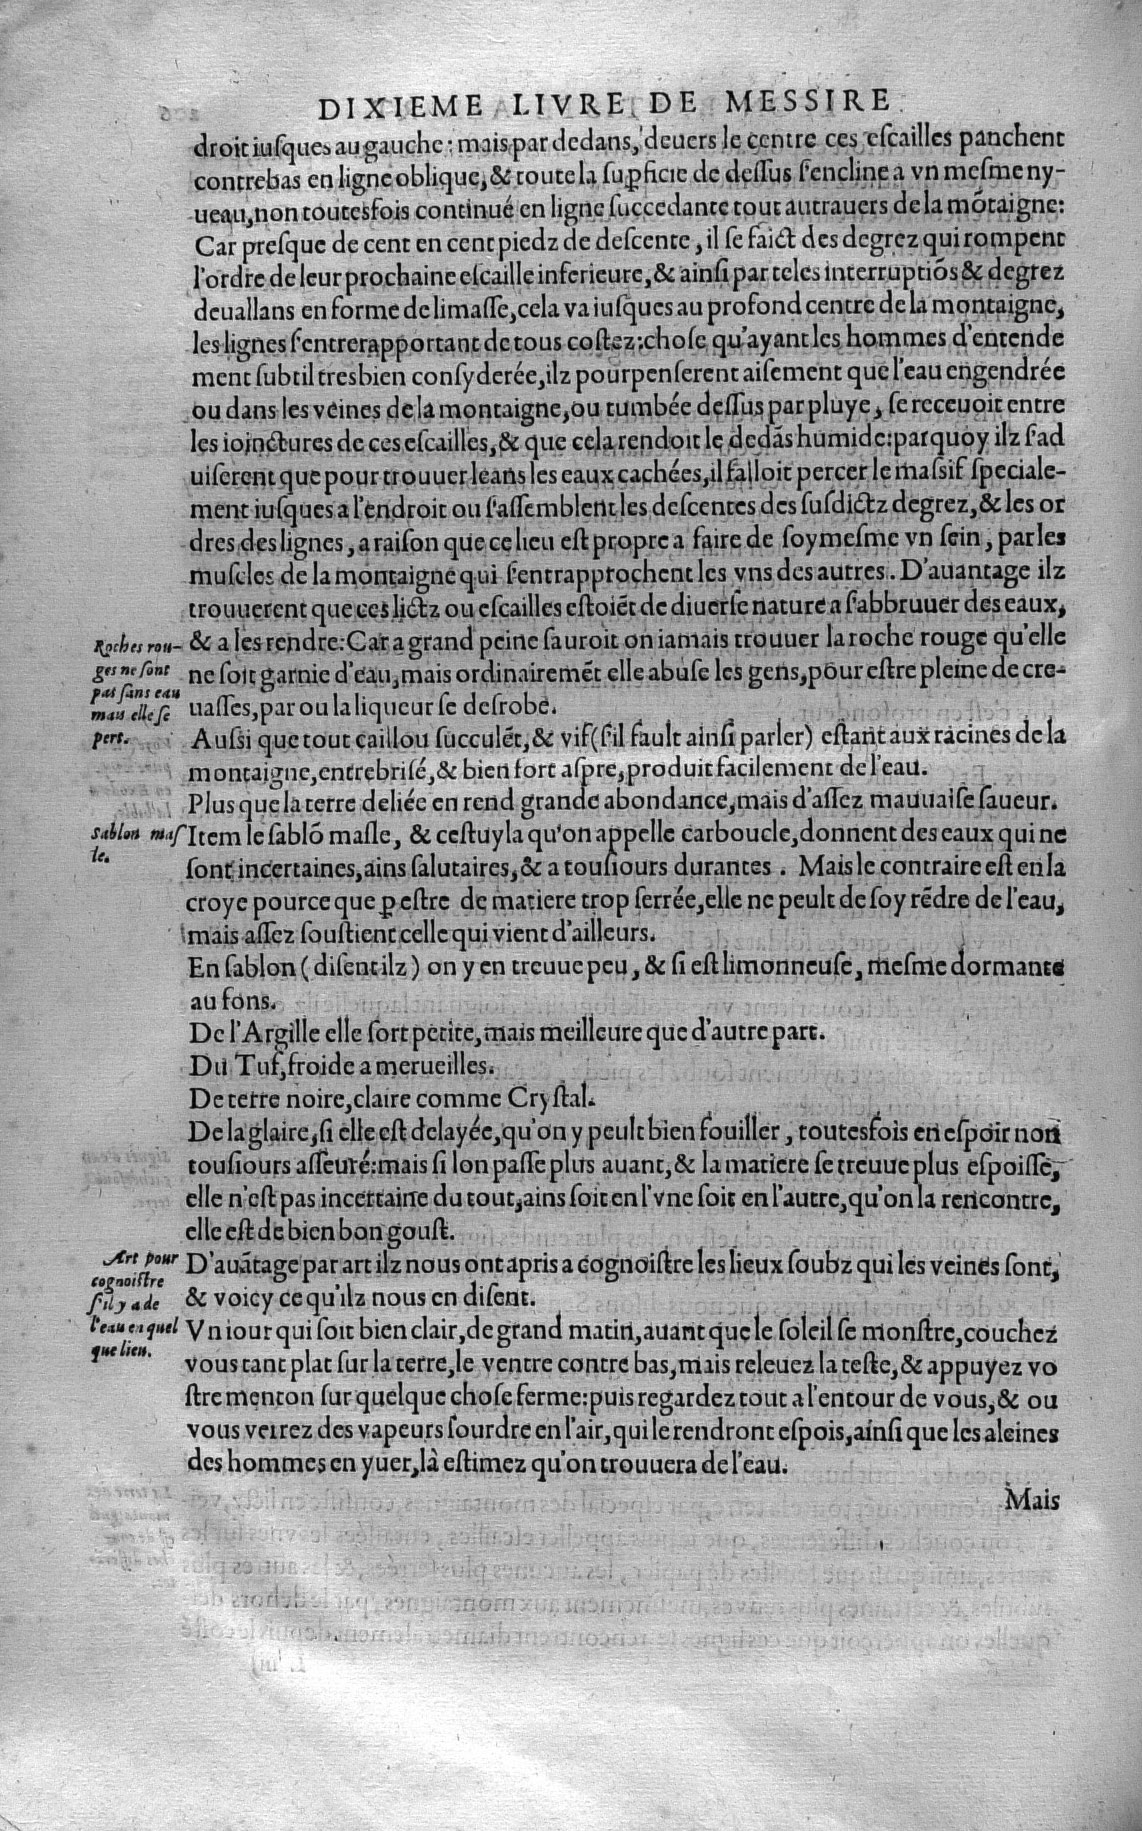 DIXIEME LIVRE DE MESSIRE
droit iuſques au gauche: mais par dedans, deuers le centre ces eſcailles panchent
contrebas en ligne oblique, & toute la suꝑficie de deſſus ſ'encline a vn meſme ny-
ueau, non toutesfois continué en ligne ſuccedante tout autrauers de la mõtaigne:
Car preſque de cent en cent piedz de deſcente, il ſe faict des degrez qui rompent
l'ordre de leur prochaine eſcaille inferieure, & ainſi par teles interruptiõs & degrez
deuallans en forme de limaſſe, cela va iuſques au profond centre de la montaigne,
les lignes ſ'entrerapportant de tous coſtez: choſe qu'ayant les hommes d'entende
ment ſubtil tresbien conſyderée, ilz pourpenſerent aiſement que l'eau engendrée
ou dans les veines de la montaigne, ou tumbée deſſus par pluye, ſe receuoit entre
les ioinctures de ces eſcailles, & que cela rendoit le dedãs humide: parquoy ilz ſ'ad
uiſerent que pour trouuer leans les eaux cachées, il falloit percer le maſsif ſpeciale-
ment iuſques a l'endroit ou ſ'aſſemblent les deſcentes des ſuſdictz degrez, & les or
dres des lignes, a raiſon que ce lieu eſt propre a faire de ſoymeſme vn ſein, par les
muſcles de la montaigne qui ſ'entrapprochent les vns des autres. D'auantage ilz
trouuerent que ces lictz ou eſcailles eſtoiẽt de diuerſe nature a ſ'abbruuer des eaux,
& a les rendre: Car a grand peine ſauroit on iamais trouuer la roche rouge qu'elle
ne ſoit garnie d'eau, mais ordinairemẽt elle abuſe les gens, pour eſtre pleine de cre-
uaſſes, par ou la liqueur ſe deſrobe.
Roches rou-
ges ne ſont
pas ſans eau
mais elle ſe
pert.
Auſsi que tout caillou ſucculẽt, & vif (ſ'il fault ainſi parler) eſtant aux racines de la
montaigne, entrebriſé, & bien fort aſpre, produit facilement de l'eau.
Plus que la terre deliée en rend grande abondance, mais d'aſſez mauuaiſe ſaueur.
Sablon maſ
le.
Item le ſablõ maſle, & ceſtuyla qu'on appelle carboucle, donnent des eaux qui ne
ſont incertaines, ains ſalutaires, & a touſiours durantes. Mais le contraire eſt en la
croye pource que ꝑ eſtre de matiere trop ſerrée, elle ne peult de ſoy rẽdre de l'eau,
mais aſſez ſouſtient celle qui vient d'ailleurs.
En ſablon (diſent ilz) on y en treuue peu, & ſi eſt limonneuſe, meſme dormante
au fons.
De l'Argille elle ſort petite, mais meilleure que d'autre part.
Du Tuf, froide a merueilles.
De terre noire, claire comme Cryſtal.
De la glaire, ſi elle eſt delayée, qu'on y peult bien fouiller, toutesfois en eſpoir non
touſiours aſſeuré: mais ſi lon paſſe plus auant, & la matiere ſe treuue plus eſpoiſſe,
elle n'eſt pas incertaine du tout, ains ſoit en l'vne ſoit en l'autre, qu'on la rencontre,
elle eſt de bien bon gouſt.
Art pour
cognoiſtre
ſ'il y a de
l'eau en quel
que lieu.
D'auãtage par art ilz nous ont apris a cognoiſtre les lieux ſoubz qui les veines ſont,
& voicy ce qu'ilz nous en diſent.
Vn iour qui ſoit bien clair, de grand matin, auant que le ſoleil ſe monſtre, couchez
vous tant plat ſur la terre, le ventre contre bas, mais releuez la teſte, & appuyez vo
ſtre menton ſur quelque choſe ferme: puis regardez tout a l'entour de vous, & ou
vous verrez des vapeurs ſourdre en l'air, qui le rendront eſpois, ainſi que les aleines
des hommes en yuer, là eſtimez qu'on trouuera de l'eau.
Mais